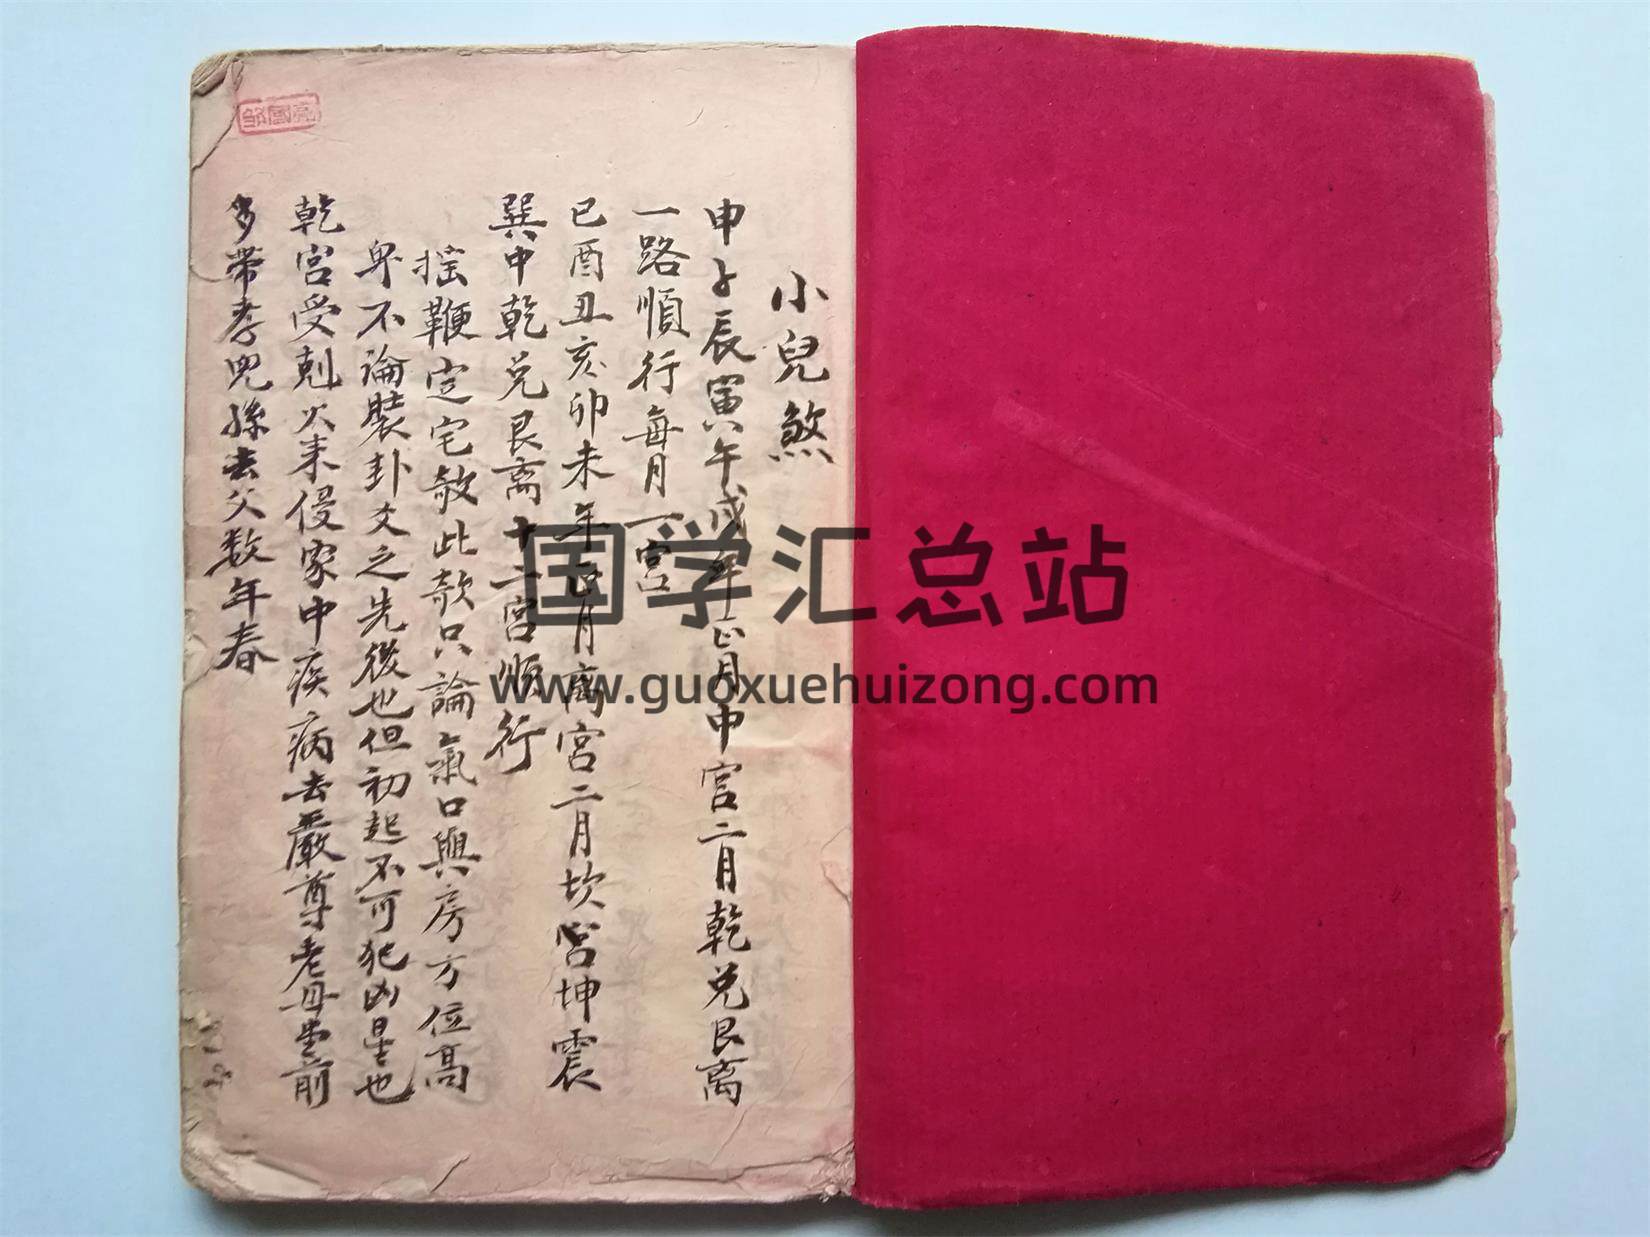 小兒煞
申子辰寅午戌年正月中宮二月乾兌艮离
一路順行每月一宮
巳酉丑亥卯未年正月离宮二月坎宮坤震
巽中乾兌艮离十二宮順行
搖鞭定宅敘此款只論氣口與房方位高
卑不論裝卦爻之先後也但初起不可犯凶星也
乾宮受剋火来侵家中疾病去嚴尊老母堂前
多带孝兒孫去父数年春
鄒國亮
国学汇总站
www.guoxuehuizong.com